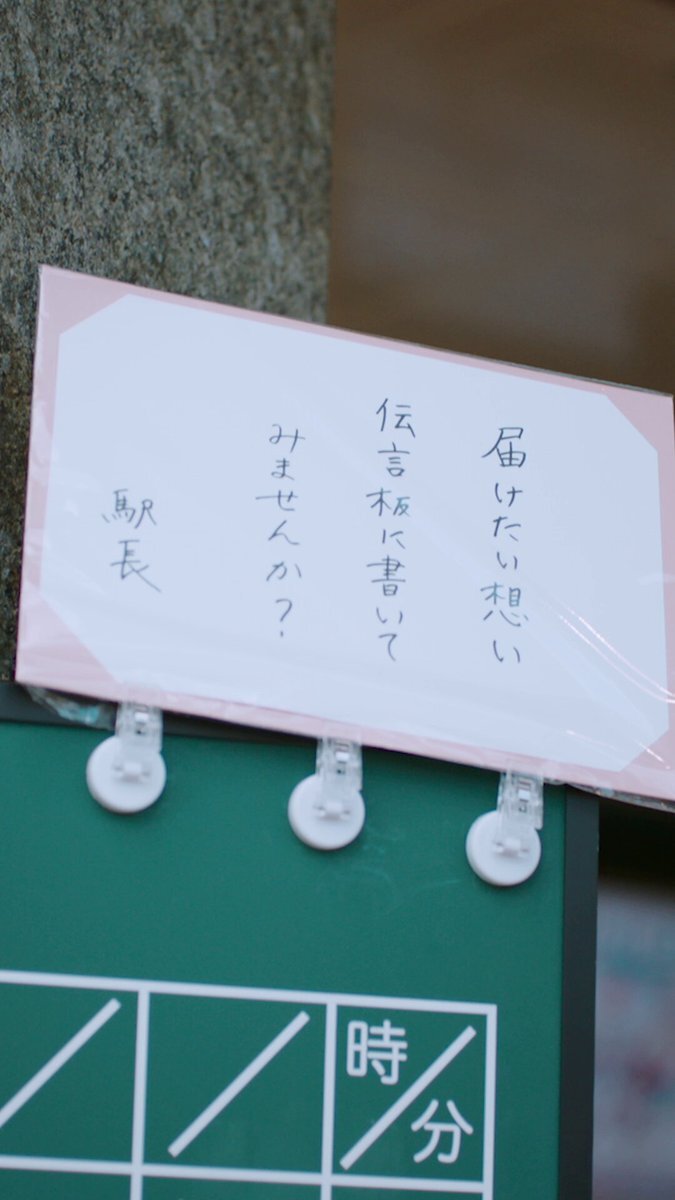 届けたい想い
伝言板に書いて
みませんか?
駅長
時/分